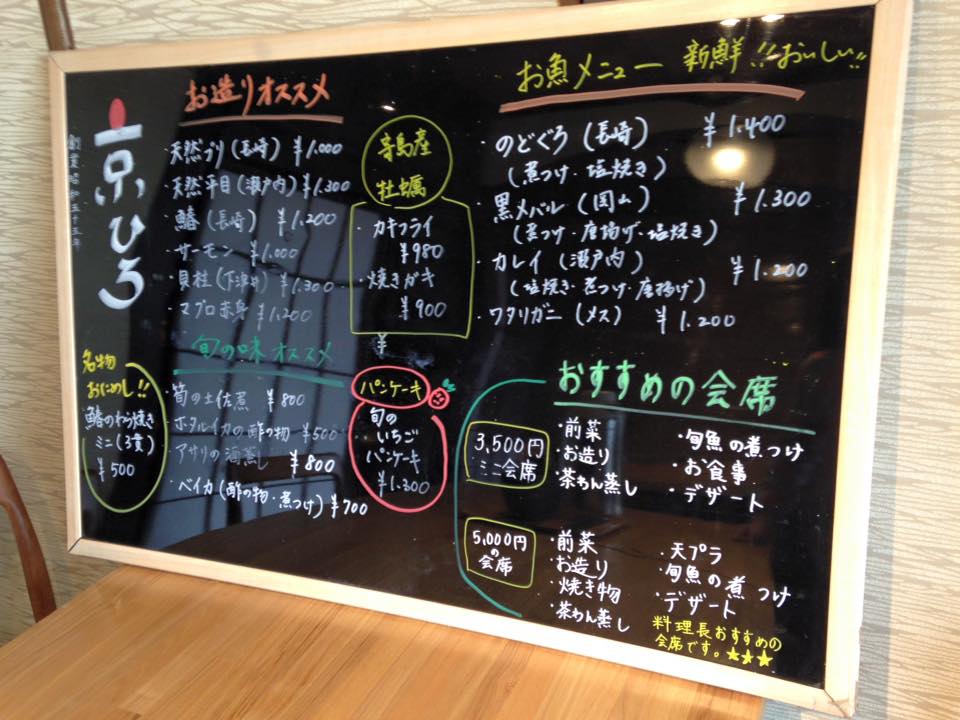 創業昭和五十五年
京ひろ
お造りオススメ
・天然ブリ(長崎) ¥1.000
・天然平目(瀬戸内)¥1.300
・鰆(長崎) ¥1.200
・サーモン ¥1.000
・貝柱(下津井) ¥1.300
・マグロ赤身 ¥1.200
寄島産
牡蠣
・カキフライ
¥980
・焼きガキ
¥900
¥
お魚メニュー 新鮮!!おいしい!!
・のどぐろ(長崎) ¥1.400
(煮つけ・塩焼き)
・黒メバル(岡山) ¥1.300
(煮つけ・唐揚げ・塩焼き)
・カレイ(瀬戸内) ¥1.200
(塩焼き・煮つけ・唐揚げ)
・ワタリガニ(メス) ¥1.200
名物
おにめし!!
鰆のわら焼き
ミニ(3貫)
¥500
旬の味オススメ
・筍の土佐煮 ¥800
・ホタルイカの酢の物 ¥500
・アサリの酒蒸し ¥800
・ベイカ(酢の物・煮つけ)¥700
パンケーキ
旬の
いちご
パンケーキ
¥1.300
おすすめの会席
3,500円
ミニ会席
・前菜
・お造り
・茶わん蒸し
・旬魚の煮つけ
・お食事
・デザート
5,000円
の
会席
・前菜
・お造り
・焼き物
・茶わん蒸し
・天プラ
・旬魚の煮つけ
・デザート
料理長おすすめの
会席です。★★★